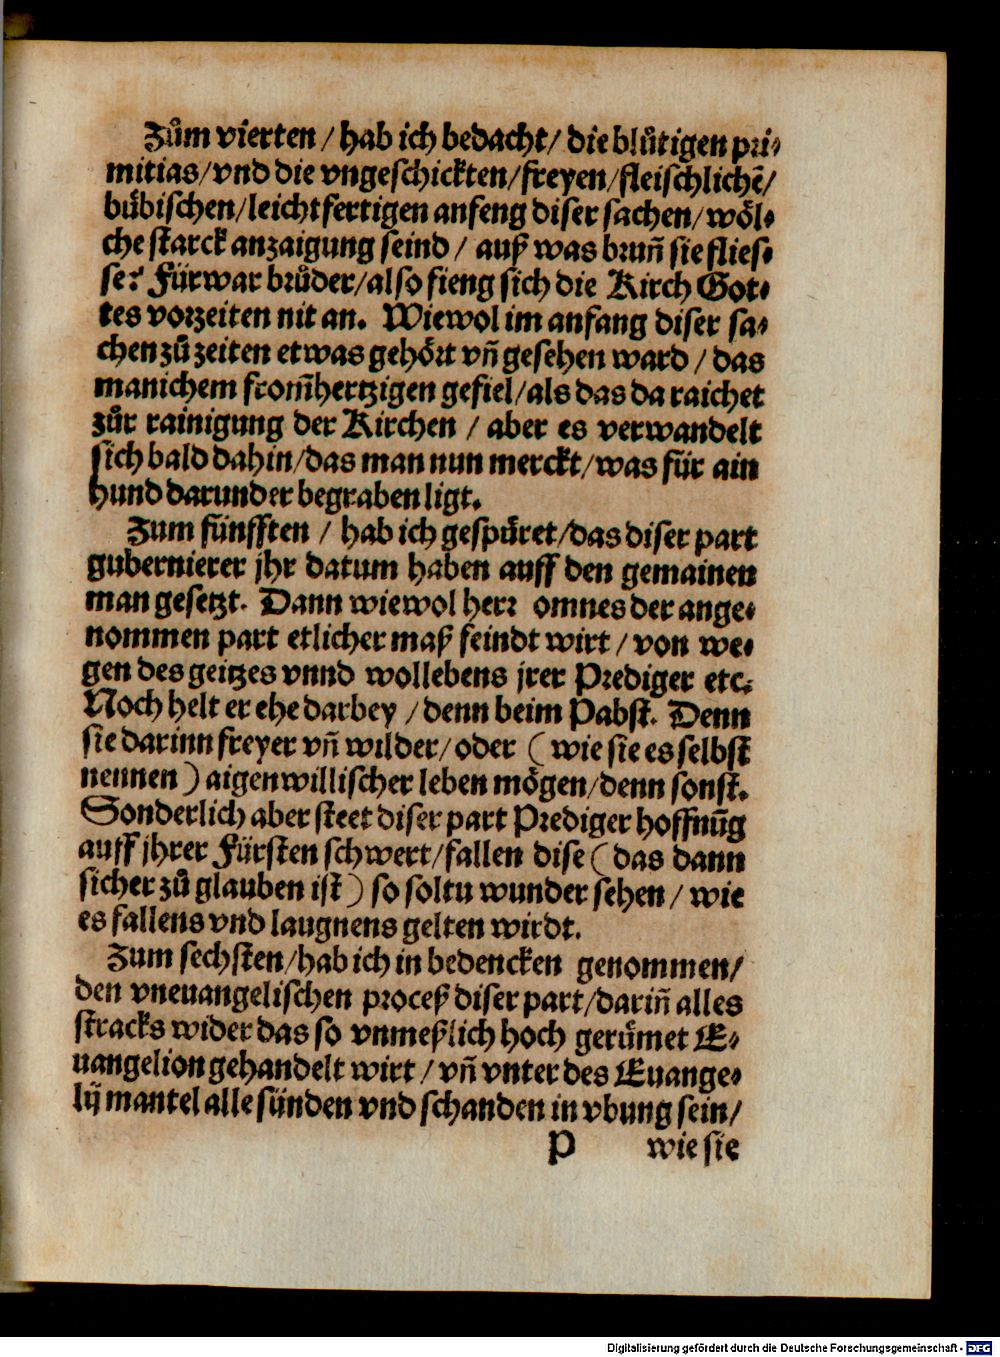 Zům vierten / hab ich bedacht / die blůtigen pri⸗
mitias / vnd die vngeschickten / freyen / fleischlichē /
bübischen / leichtfertigen anfeng diser sachen / wöl⸗
che starck anzaigung seind / auß was brun̄ sie flies⸗
se? Fürwar brůder / also fieng sich die Kirch Got⸗
tes vorzeiten nit an. Wiewol im anfang diser sa⸗
chen zů zeiten etwas gehört vn̄ gesehen ward / das
manichem from̄hertzigen gefiel / als das da raichet
zůr rainigung der Kirchen / aber es verwandelt
sich bald dahin / das man nun merckt / was für ain
hund darunder begraben ligt.
Zum fünfften / hab ich gespüret / das diser part
gubernierer jhr datum haben auff den gemainen
man gesetzt. Dann wiewol herr omnes der ange⸗
nommen part etlicher maß feindt wirt / von we⸗
gen des geitzes vnnd wollebens jrer Prediger etc.
Noch helt er ehe darbey / denn beim Pabst. Denn
sie darinn freyer vn̄ wilder / oder ( wie sie es selbst
nennen ) aigenwillischer leben mögen / denn sonst.
Sonderlich aber steet diser part Prediger hoffnūg
auff jhrer Fürsten schwert / fallen dise ( das dann
sicher zů glauben ist ) so soltu wunder sehen / wie
es fallens vnd laugnens gelten wirdt.
Zum sechsten / hab ich in bedencken genommen /
den vneuangelischen proceß diser part / darin̄ alles
stracks wider das so vnmeßlich hoch gerümet E⸗
uangelion gehandelt wirt / vn̄ vnter des Euange⸗
lij mantel alle sünden vnd schanden in vbung sein /
P wie sie
Digitalisierung gefördert durch die Deutsche Forschungsgemeinschaft - DFG